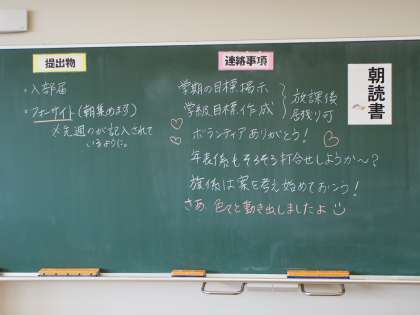 提出物
・入部届
・フォーサイト(朝集めます)
〆先週のが記入されて
いるように。
連絡事項
学期の目標掲示
学級目標作成
放課後
居残り可
ボランティアありがとう!
年表係もそろそろ打合せしようか〜?
旗係は案を考え始めておこう!
さあ、色々と動き出しましたよ
朝読書